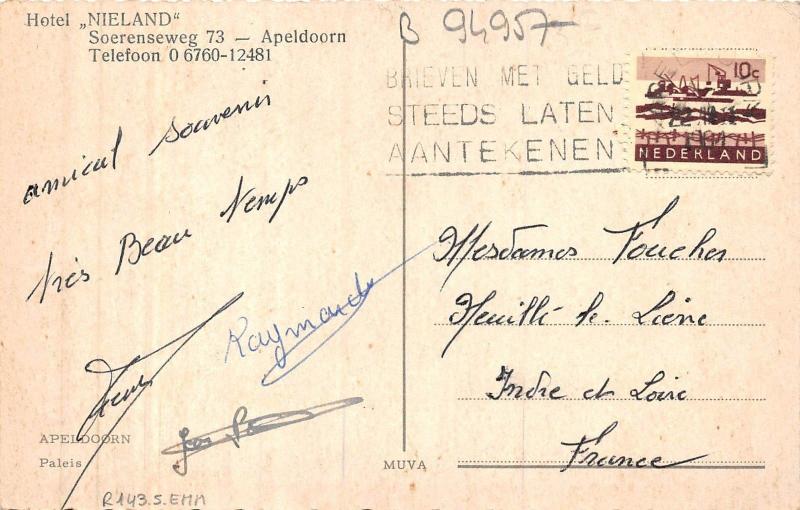 Hotel „NIELAND“
Soerenseweg 73 — Apeldoorn
Telefoon 0 6760-12481
B 94957
BRIEVEN MET GELD
STEEDS LATEN
AANTEKENEN
10c
NEDERLAND
amical souvenir
très Beau temps
Raymonde
Mesdames Foucher
Neuillé-le-Lierre
Indre et Loire
France
APELDOORN
Paleis
MUVA
R143.5.EMM